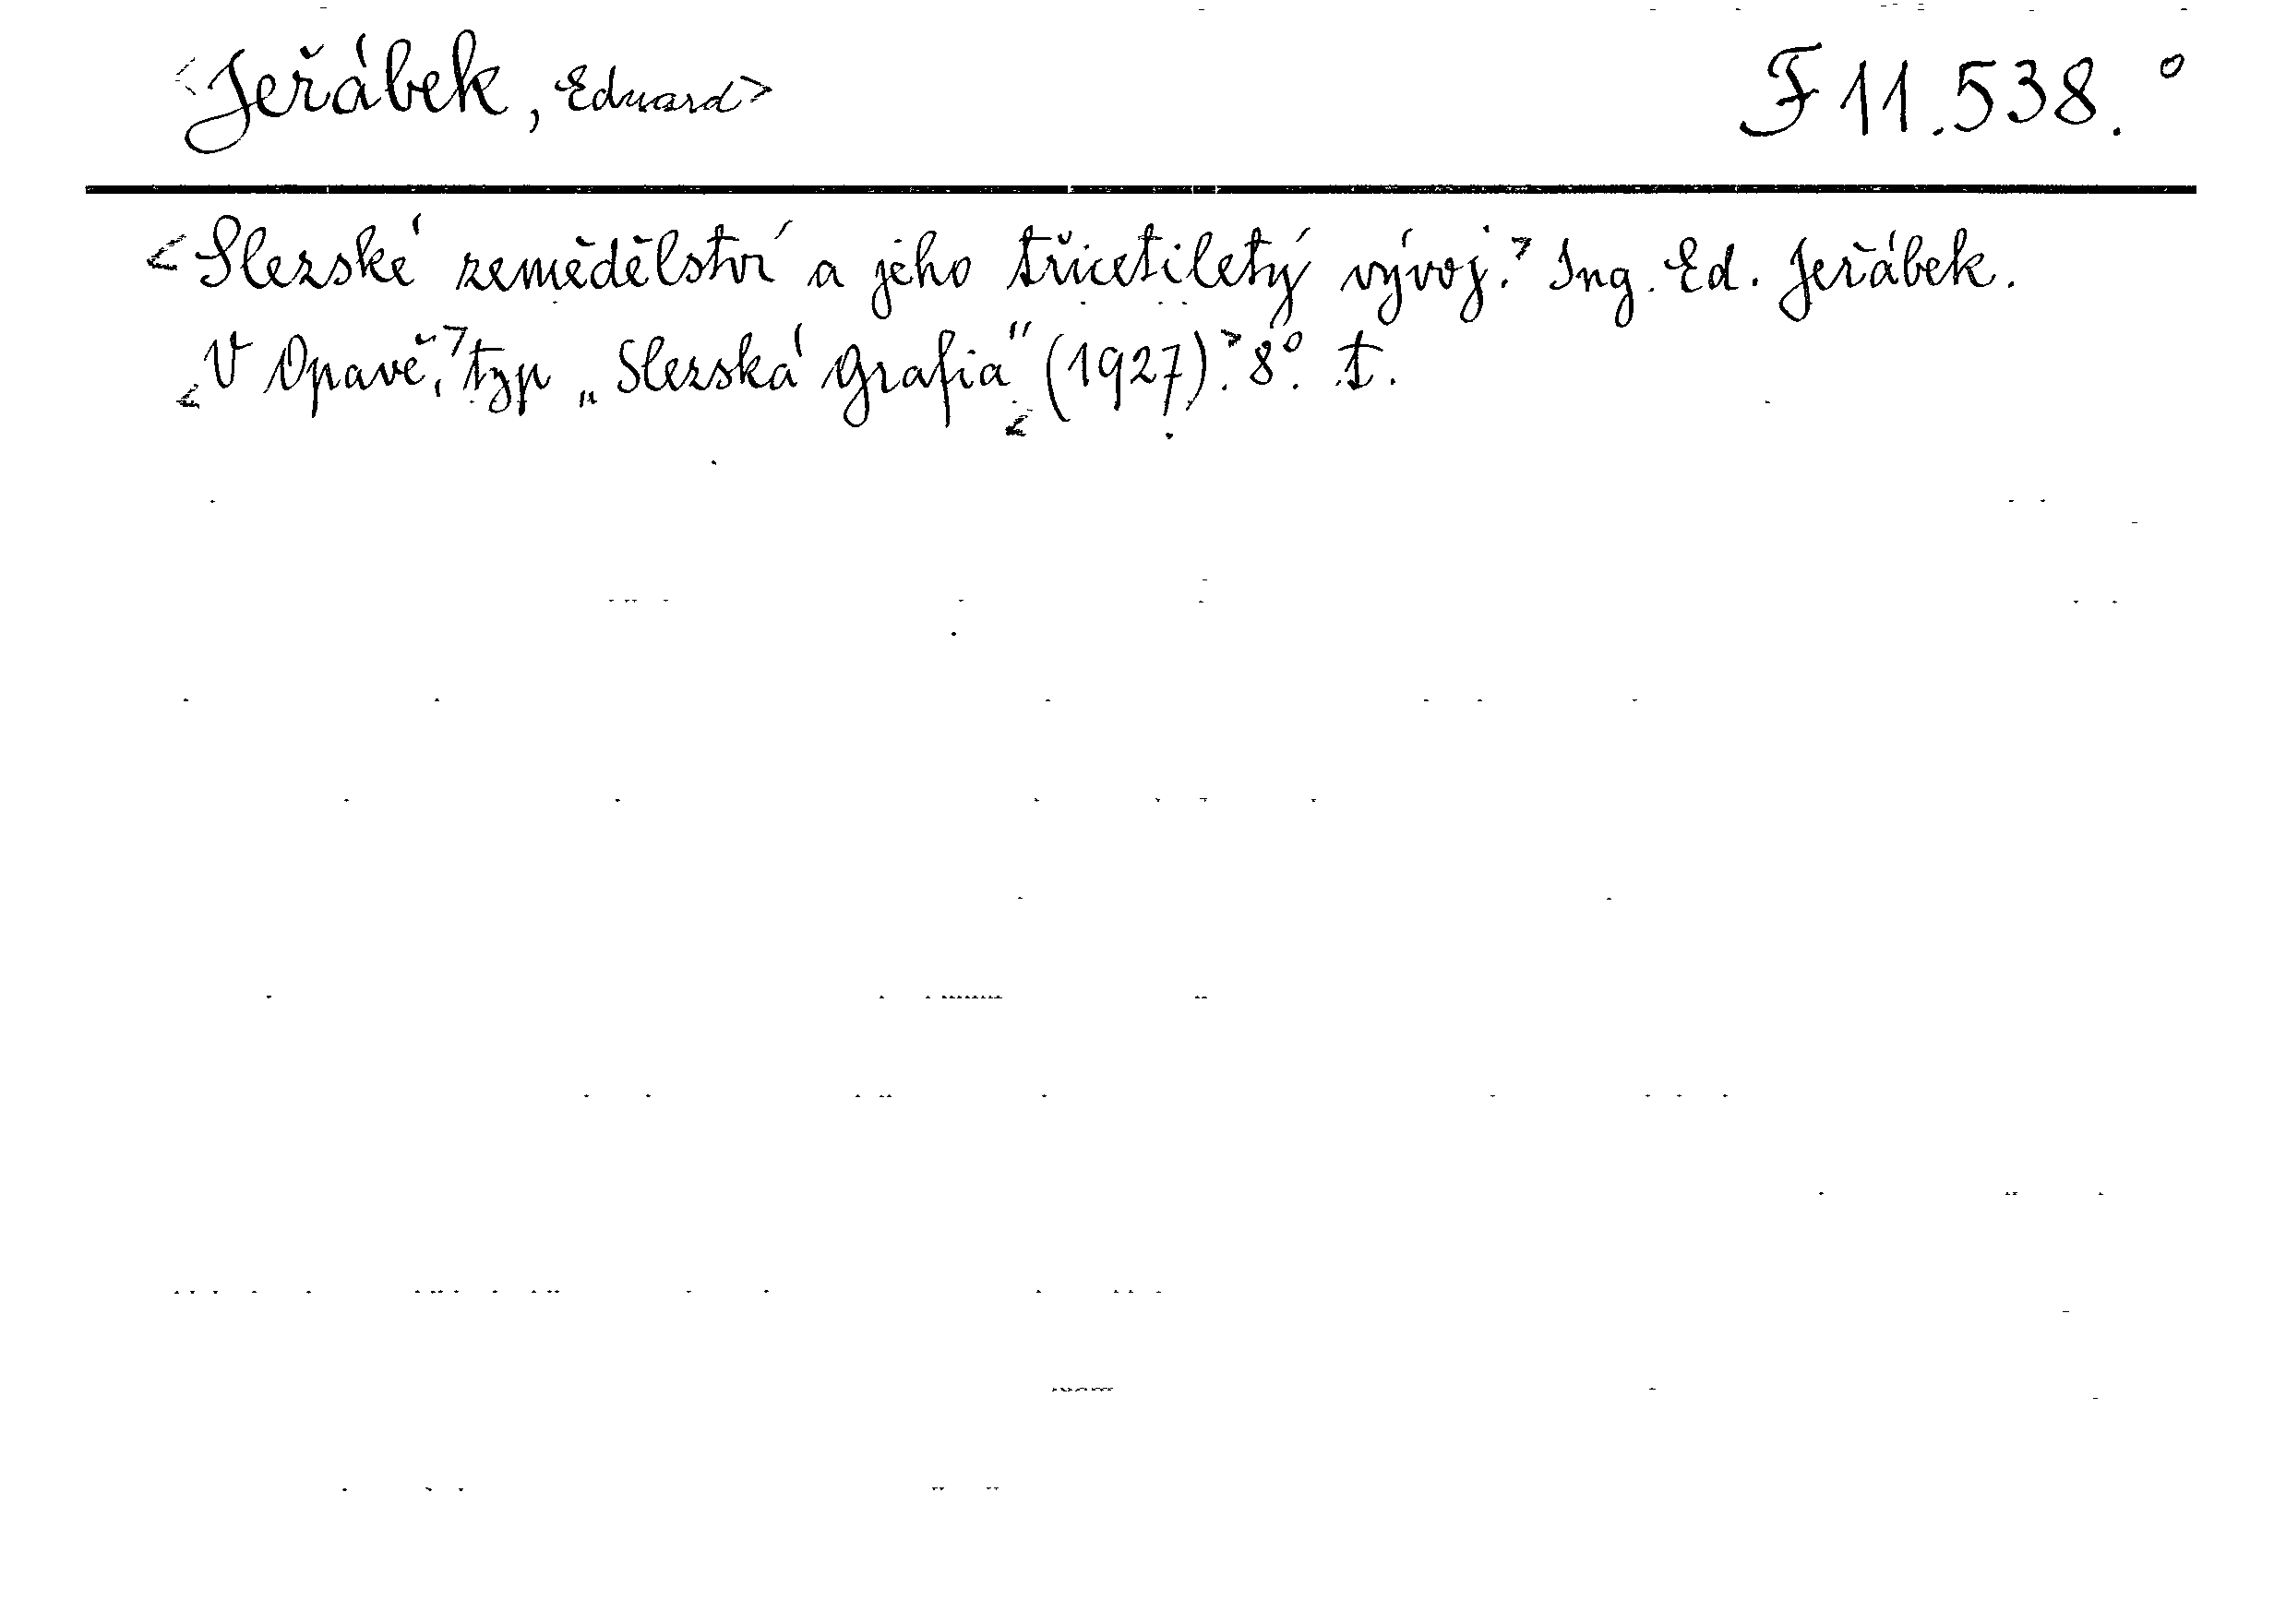 <Jeřábek, Eduard> F 11.538. °
<Slezské zemědělství a jeho třicetiletý vývoj.> Ing. Ed. Jeřábek.
<V Opavě,> typ „Slezská Grafia" <(1927).> 8°. t.